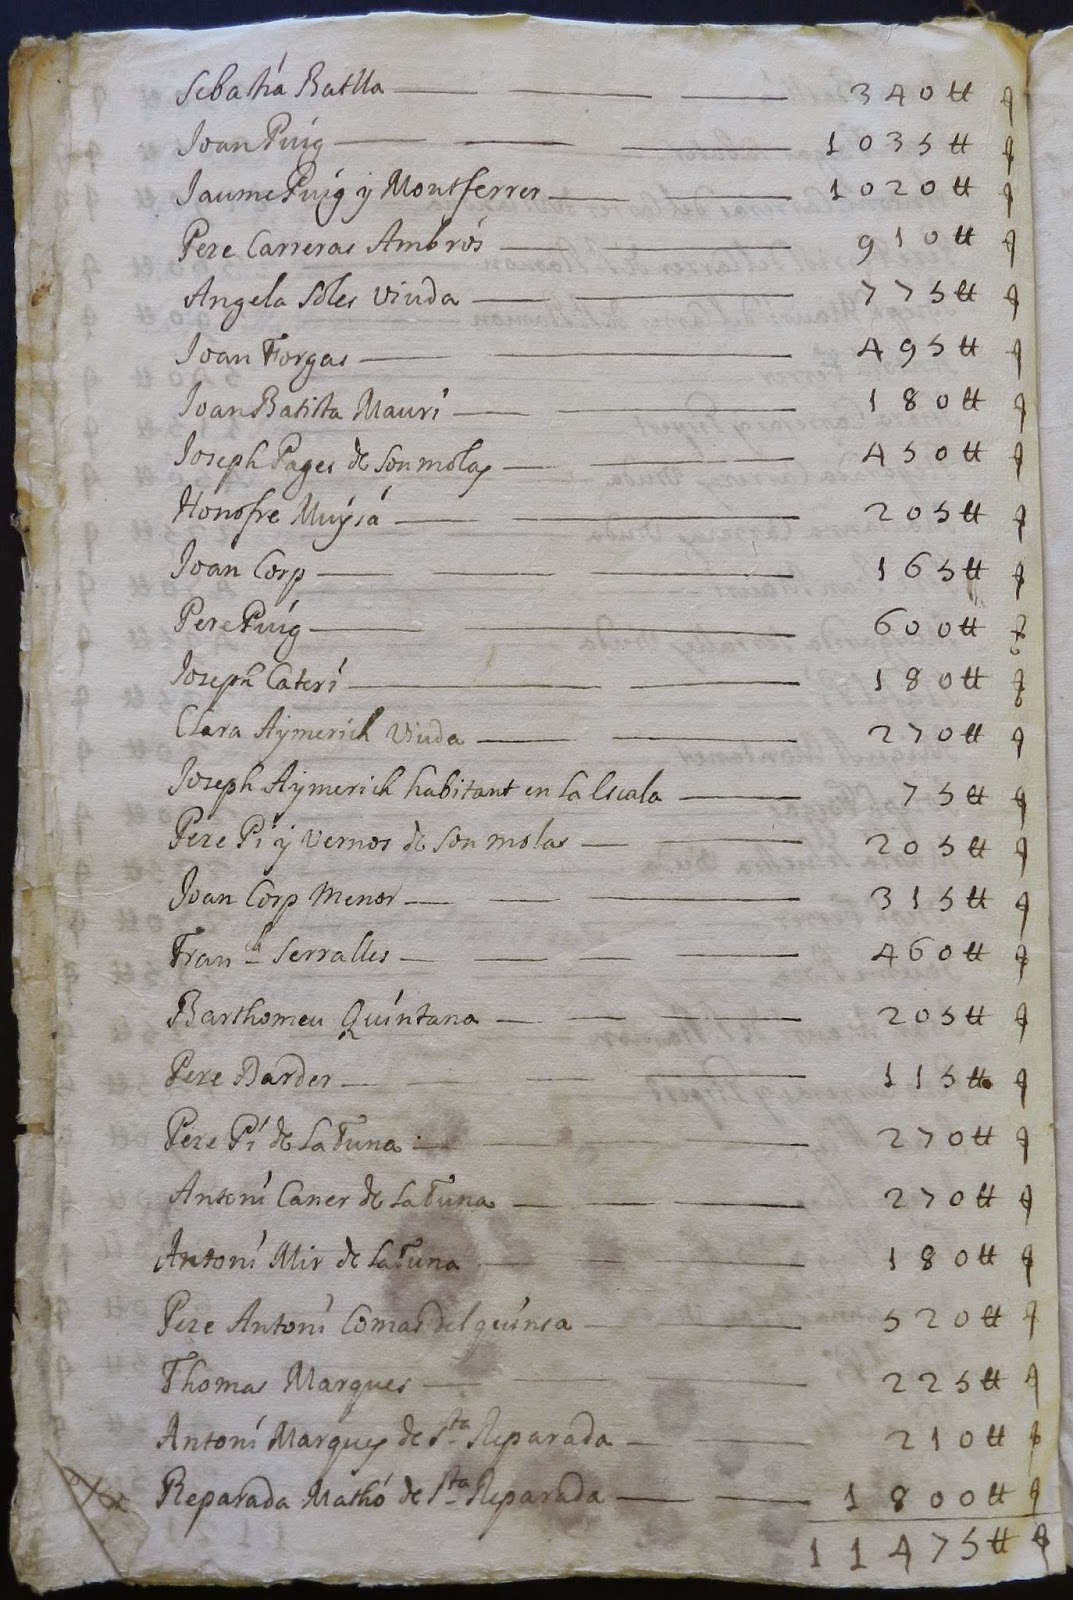 Sebastiá Batlla — 340 ₶ ꝭ
Joan Puig — 1035 ₶ ꝭ
Jaume Puig y Montferrer — 1020 ₶ ꝭ
Pere Carreras Ambrós — 910 ₶ ꝭ
Angela Soler viuda — 775 ₶ ꝭ
Joan Forgas — 495 ₶ ꝭ
Joan Batista Mauri — 180 ₶ ꝭ
Joseph Pages de Sonmolas — 450 ₶ ꝭ
Honofre — 205 ₶ ꝭ
Joan Corp — 165 ₶ ꝭ
Pere Puig — 600 ₶ ꝭ
Joseph Caterí — 180 ₶ ꝭ
Clara Aymerich Viuda — 270 ₶ ꝭ
Joseph Aymerich habitant en La Escala — 75 ₶ ꝭ
Pere Pi y Vernos de Sonmolas — 205 ₶ ꝭ
Joan Corp Menor — 315 ₶ ꝭ
Fran.ch Serralles — 460 ₶ ꝭ
Barthomeu Quintana — 205 ₶ ꝭ
Pere Barder — 115 ₶ ꝭ
Pere Pí de La Tuna — 270 ₶ ꝭ
Antoni Caner de La Tuna — 270 ₶ ꝭ
Antoni Mir de La Tuna — 180 ₶ ꝭ
Pere Antoni Comas del — 520 ₶ ꝭ
Thomas Marques — 225 ₶ ꝭ
Antoni Marques de S.ta Reparada — 210 ₶ ꝭ
Reparada Mathó de S.ta Reparada — 1800 ₶ ꝭ
11475 ₶ ꝭ